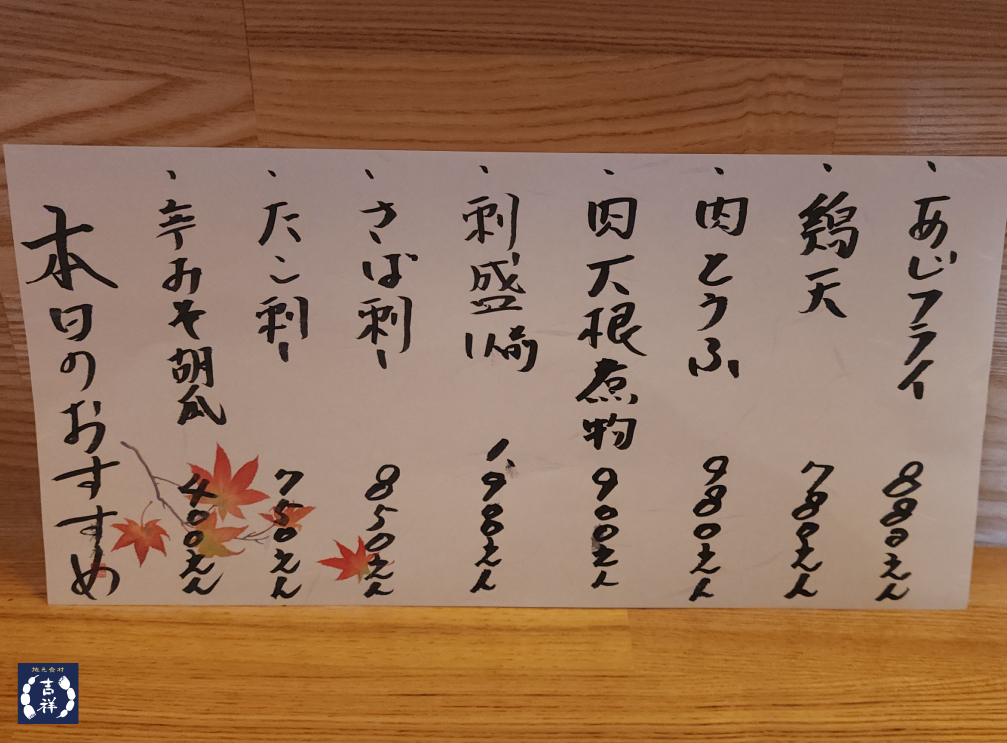 、あじフライ 880えん
、鶏天 780えん
、肉とうふ 980えん
、肉大根煮物 900えん
、刺盛1人前 1,980えん
、さば刺し 850えん
、たこ刺し 750えん
、辛みそ胡瓜 400えん
本日のおすすめ
地元食材
吉祥